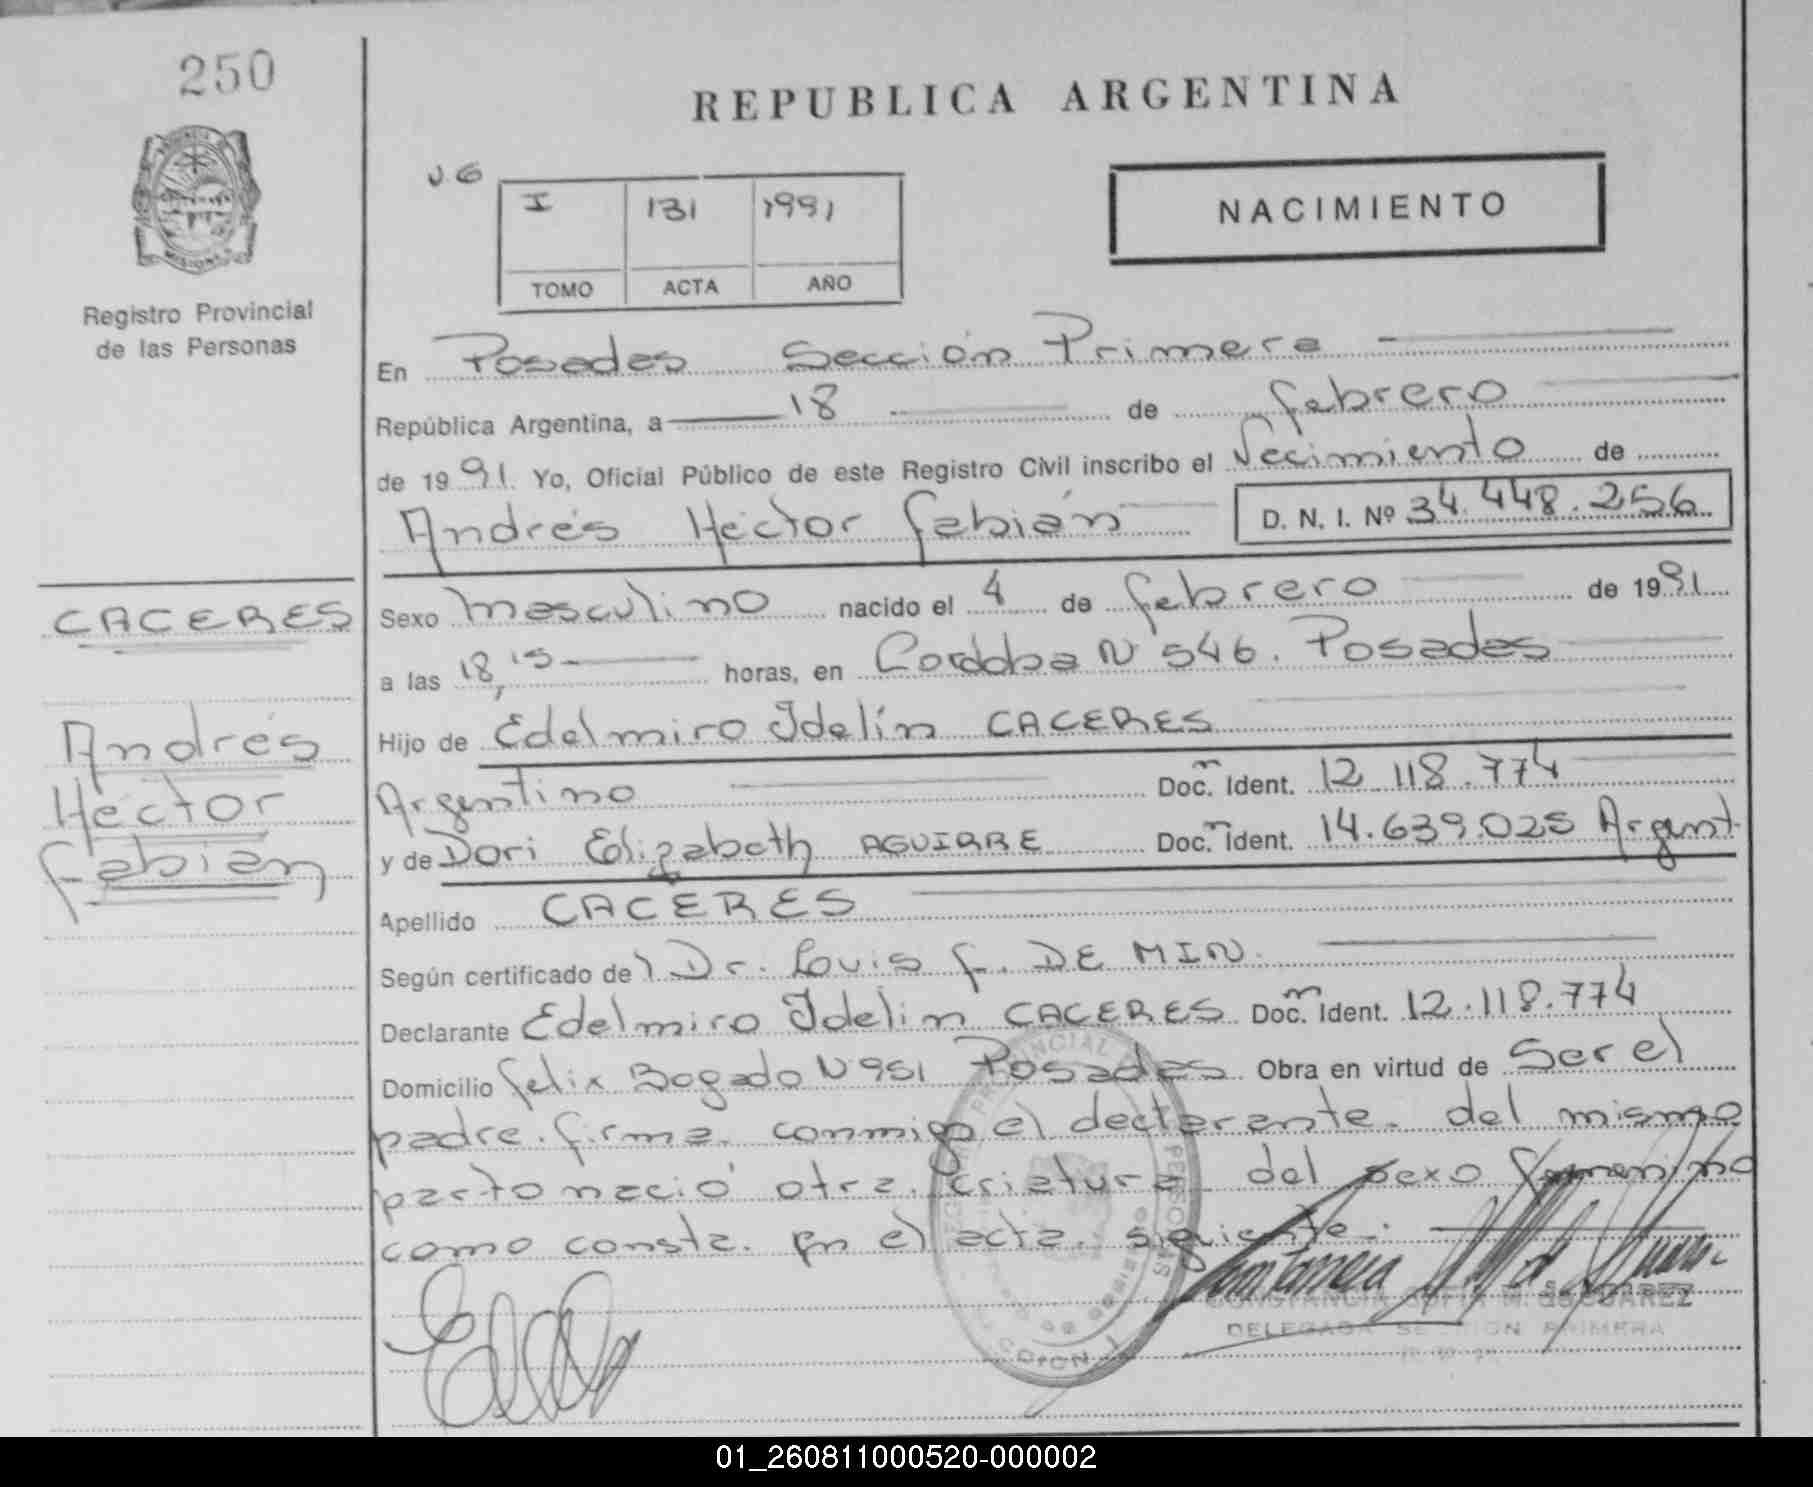 250
REPUBLICA ARGENTINA
PROVINCIA
MISIONES
Registro Provincial
de las Personas
I 131 1991
TOMO ACTA AÑO
NACIMIENTO
En Posadas Sección Primera
República Argentina, a 18 de febrero
de 1991. Yo, Oficial Público de este Registro Civil inscribo el Nacimiento de
Andrés Héctor Fabián D. N. I. Nº 34.448.256
CACERES
Andrés
Héctor
Fabián
Sexo masculino nacido el 4 de febrero de 1991
a las 18,15 horas, en Cordoba N 546. Posadas
Hijo de Edelmiro Idelín CACERES
Argentino Doc. Ident. 12.118.774
y de Dori Elizabeth AGUIRRE Doc. Ident. 14.639.025 Argent.
Apellido CACERES
Según certificado del Dr. Louis F. DE MIN.
Declarante Edelmiro Idelin CACERES Doc. Ident. 12.118.774
Domicilio Felix Bogado N 951 Posadas Obra en virtud de Ser el
padre. firma conmigo el declarante. del mismo
parto nació otra criatura del sexo femenino
como consta. en el acta. siguiente.
CONSTANCIA SOFIA M. de SUAREZ
DELEGADA SECCION PRIMERA
01_260811000520-000002